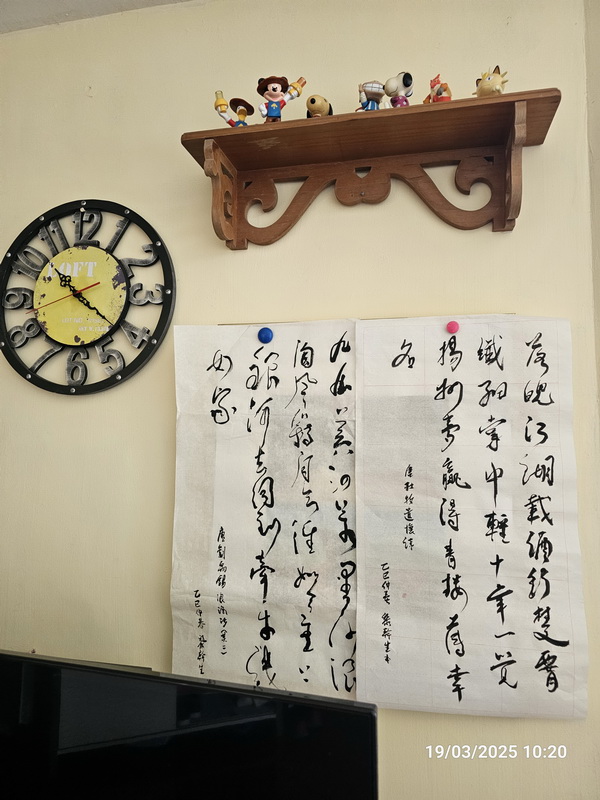 12
1
2
3
4
5
6
7
8
9
10
11
LOFT
落魄江湖載酒行楚腰
纖細掌中輕十年一覺
揚州夢贏得青樓薄幸
名
唐杜牧遣懷詩
乙巳仲春
九曲黃河萬里沙浪
淘風簸自天涯如今直上
銀河去同到牽牛織
女家
唐劉禹錫浪淘沙
乙巳仲春
19/03/2025 10:20